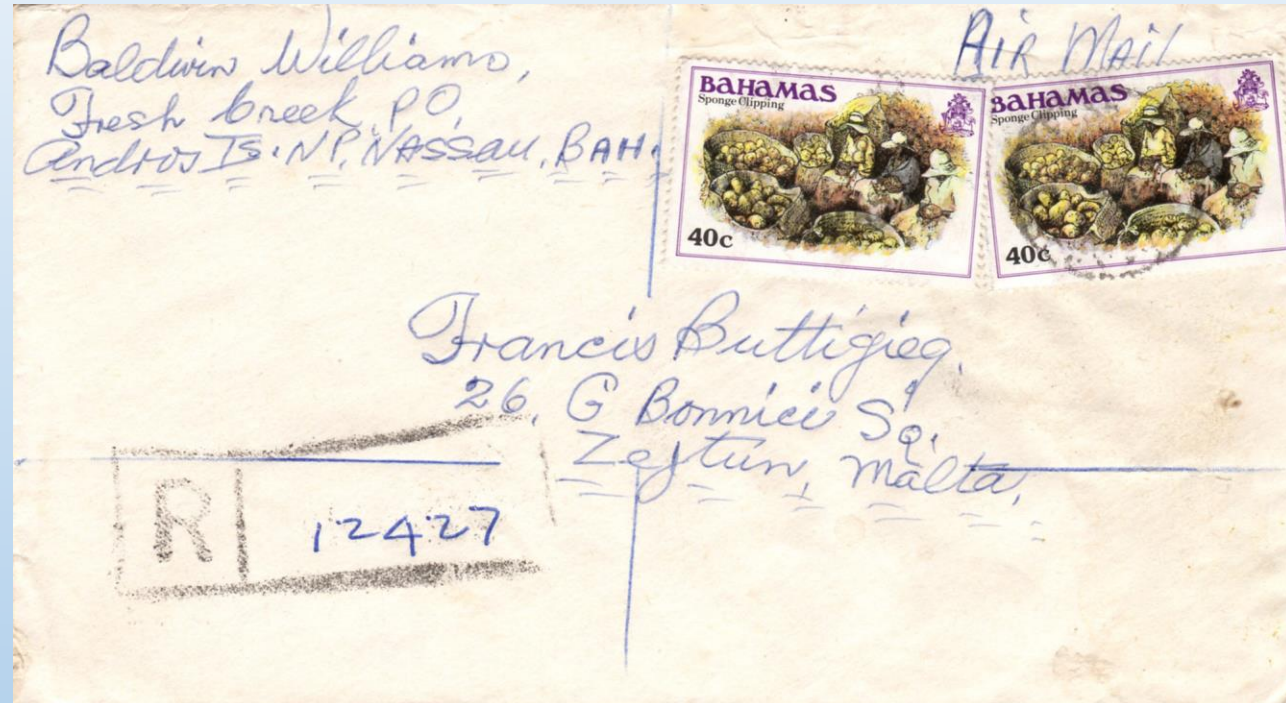 Baldwin Williams,
Fresh Creek, P.O,
Andros Is. N.P. NASSAU, BAH.
AIR MAIL
BAHAMAS
Sponge Clipping
40c
BAHAMAS
Sponge Clipping
40c
Francis Buttigieg.
26, G Bonnici Sq.
Zejtun, Malta,
R 12427